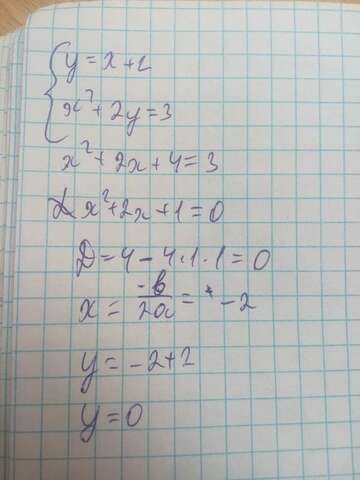 y = x + 2
x² + 2y = 3
x² + 2x + 4 = 3
x² + 2x + 1 = 0
D = 4 - 4·1·1 = 0
x = -b/2a = -2
y = -2+2
y = 0